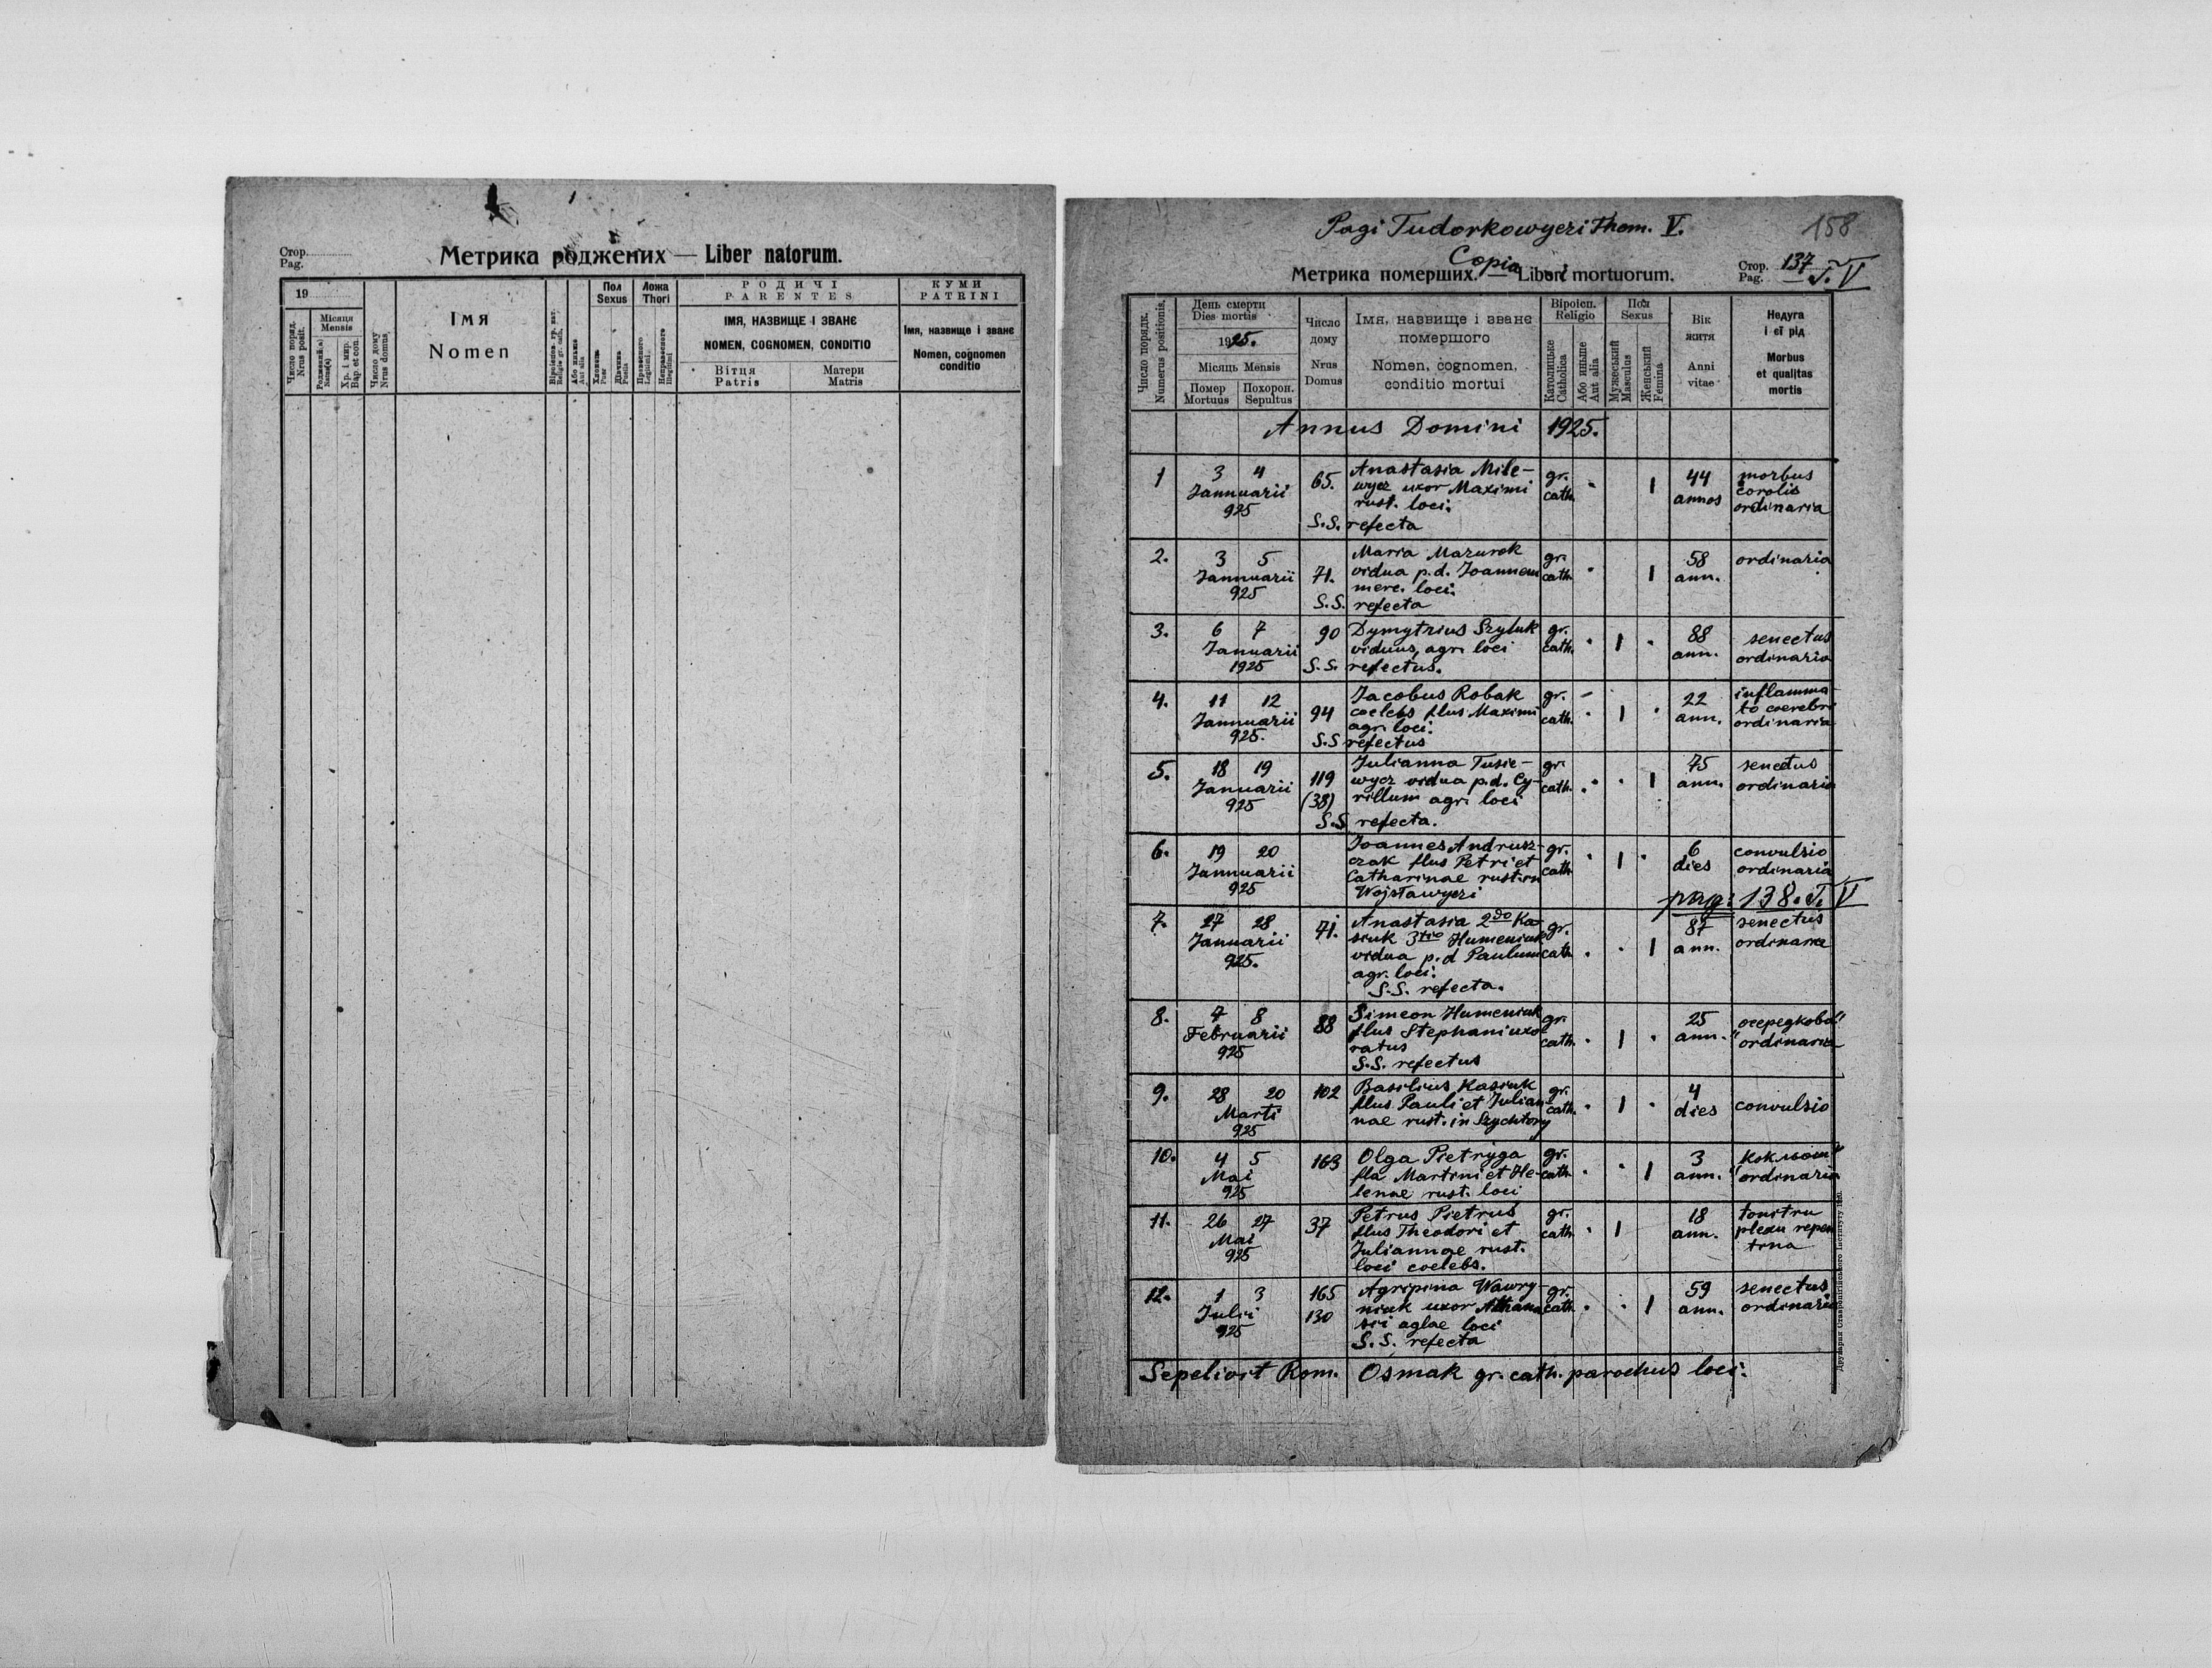 Стор.
Pag.
Метрика роджених — Liber natorum.
19
Число поряд.
Nrus posit.
Місяця
Mensis
Хр. і мир.
Bap. et con.
Число дому
Nrus domus
Імя
Nomen
Або иньше
Aut alia
Пол
Sexus
Хлопець
Puer
Дівчина
Puella
Ложа
Thori
Правесного
Legitimi
Неправесного
Illegitimi
РОДИЧІ
PARENTES
ІМЯ, НАЗВИЩЕ І ЗВАНЄ
NOMEN, COGNOMEN, CONDITIO
Вітця
Patris
Матери
Matris
КУМИ
PATRINI
Імя, назвище і званє
Nomen, cognomen
conditio
158
Pagi Tudorkowyczi Thom. V.
Copia
Метрика померших. — Libri mortuorum.
Стор.
Pag. 137
T. V
Число порядк.
Numerus positionis.
День смерти
Dies mortis
1925.
Місяць Mensis
Помер
Mortuus
Похорон.
Sepultus
Число
дому
Nrus
Domus
Імя, назвище і званє
помершого
Nomen, cognomen,
conditio mortui
Віроісп.
Religio
Католицьке
Catholica
Або иньше
Aut alia
Пол
Sexus
Мужеський
Masculus
Женський
Femina
Вік
життя
Anni
vitae
Недуга
і єї рід
Morbus
et qualitas
mortis
Annus Domini 1925.
1 3 4 Jannuarii 925 65. Anastasia Mile-
wycz uxor Maximi
rust. loci.
S.S. refecta
gr. cath. 1 44 annos morbus
corolis
ordinaria
2. 3 5 Jannuarii 925 71. Maria Mazurok
vidua p.d. Joannem
merc. loci.
S.S. refecta
gr. cath. 1 58 ann. ordinaria
3. 6 7 Januarii 1925 90 Dymytrius Szyluk
viduus, agr. loci
S.S. refectus.
gr. cath. 1 88 ann. senectus
ordinaria
4. 11 12 Jannuarii 925. 94 Jacobus Robak
coelebs flus Maximi
agr. loci.
S.S refectus
gr. cath. 1 22 ann. inflamma-
to coerebri
ordinaria
5. 18 19 Januarii 925 119 (38) Julianna Tusie-
wycz vidua p.d. Cy-
rillum agr. loci
S.S refecta.
gr. cath. 1 75 ann. senectus
ordinaria
6. 19 20 Jannuarii 925 Joannes Andrusz-
czak flus Petri et
Catharinae rust. in
Wojsławyczi
gr. cath. 1 6 dies convulsio
ordinaria
pag: 138. T. V
7. 27 28 Januarii 925. 71. Anastasia 2do Ka-
siuk 3tio Humeniuk
vidua p.d Paulum
agr. loci.
S.S. refecta.
gr. cath. 1 87 ann. senectus
ordinaria
8. 7 8 Februarii 925 88 Simeon Humeniuk
flus Stephani uxo-
ratus
S.S. refectus
gr. cath. 1 25 ann. "осередкова"
ordinaria
9. 28 20 Marti 925 102 Basilius Kasiuk
flus Pauli et Julian-
nae rust. in Szychtory
gr. cath. 1 4 dies convulsio
10. 4 5 Mai 925 163 Olga Pietryga
fla Martini et He-
lenae rust. loci
gr. cath. 1 3 ann. "коклюш"
ordinaria
11. 26 27 Mai 925 37 Petrus Pietrus
flus Theodori et
Juliannae rust.
loci coelebs.
gr. cath. 1 18 ann. tonitru
plexu repen
tina
12. 1 3 Julii 925 165 130 Agripina Wawry-
niuk uxor Athana-
sii aglae loci
S.S. refecta
gr. cath. 1 59 ann. senectus
ordinaria
Sepelivit Rom. Osmak gr. cath. parochus loci.